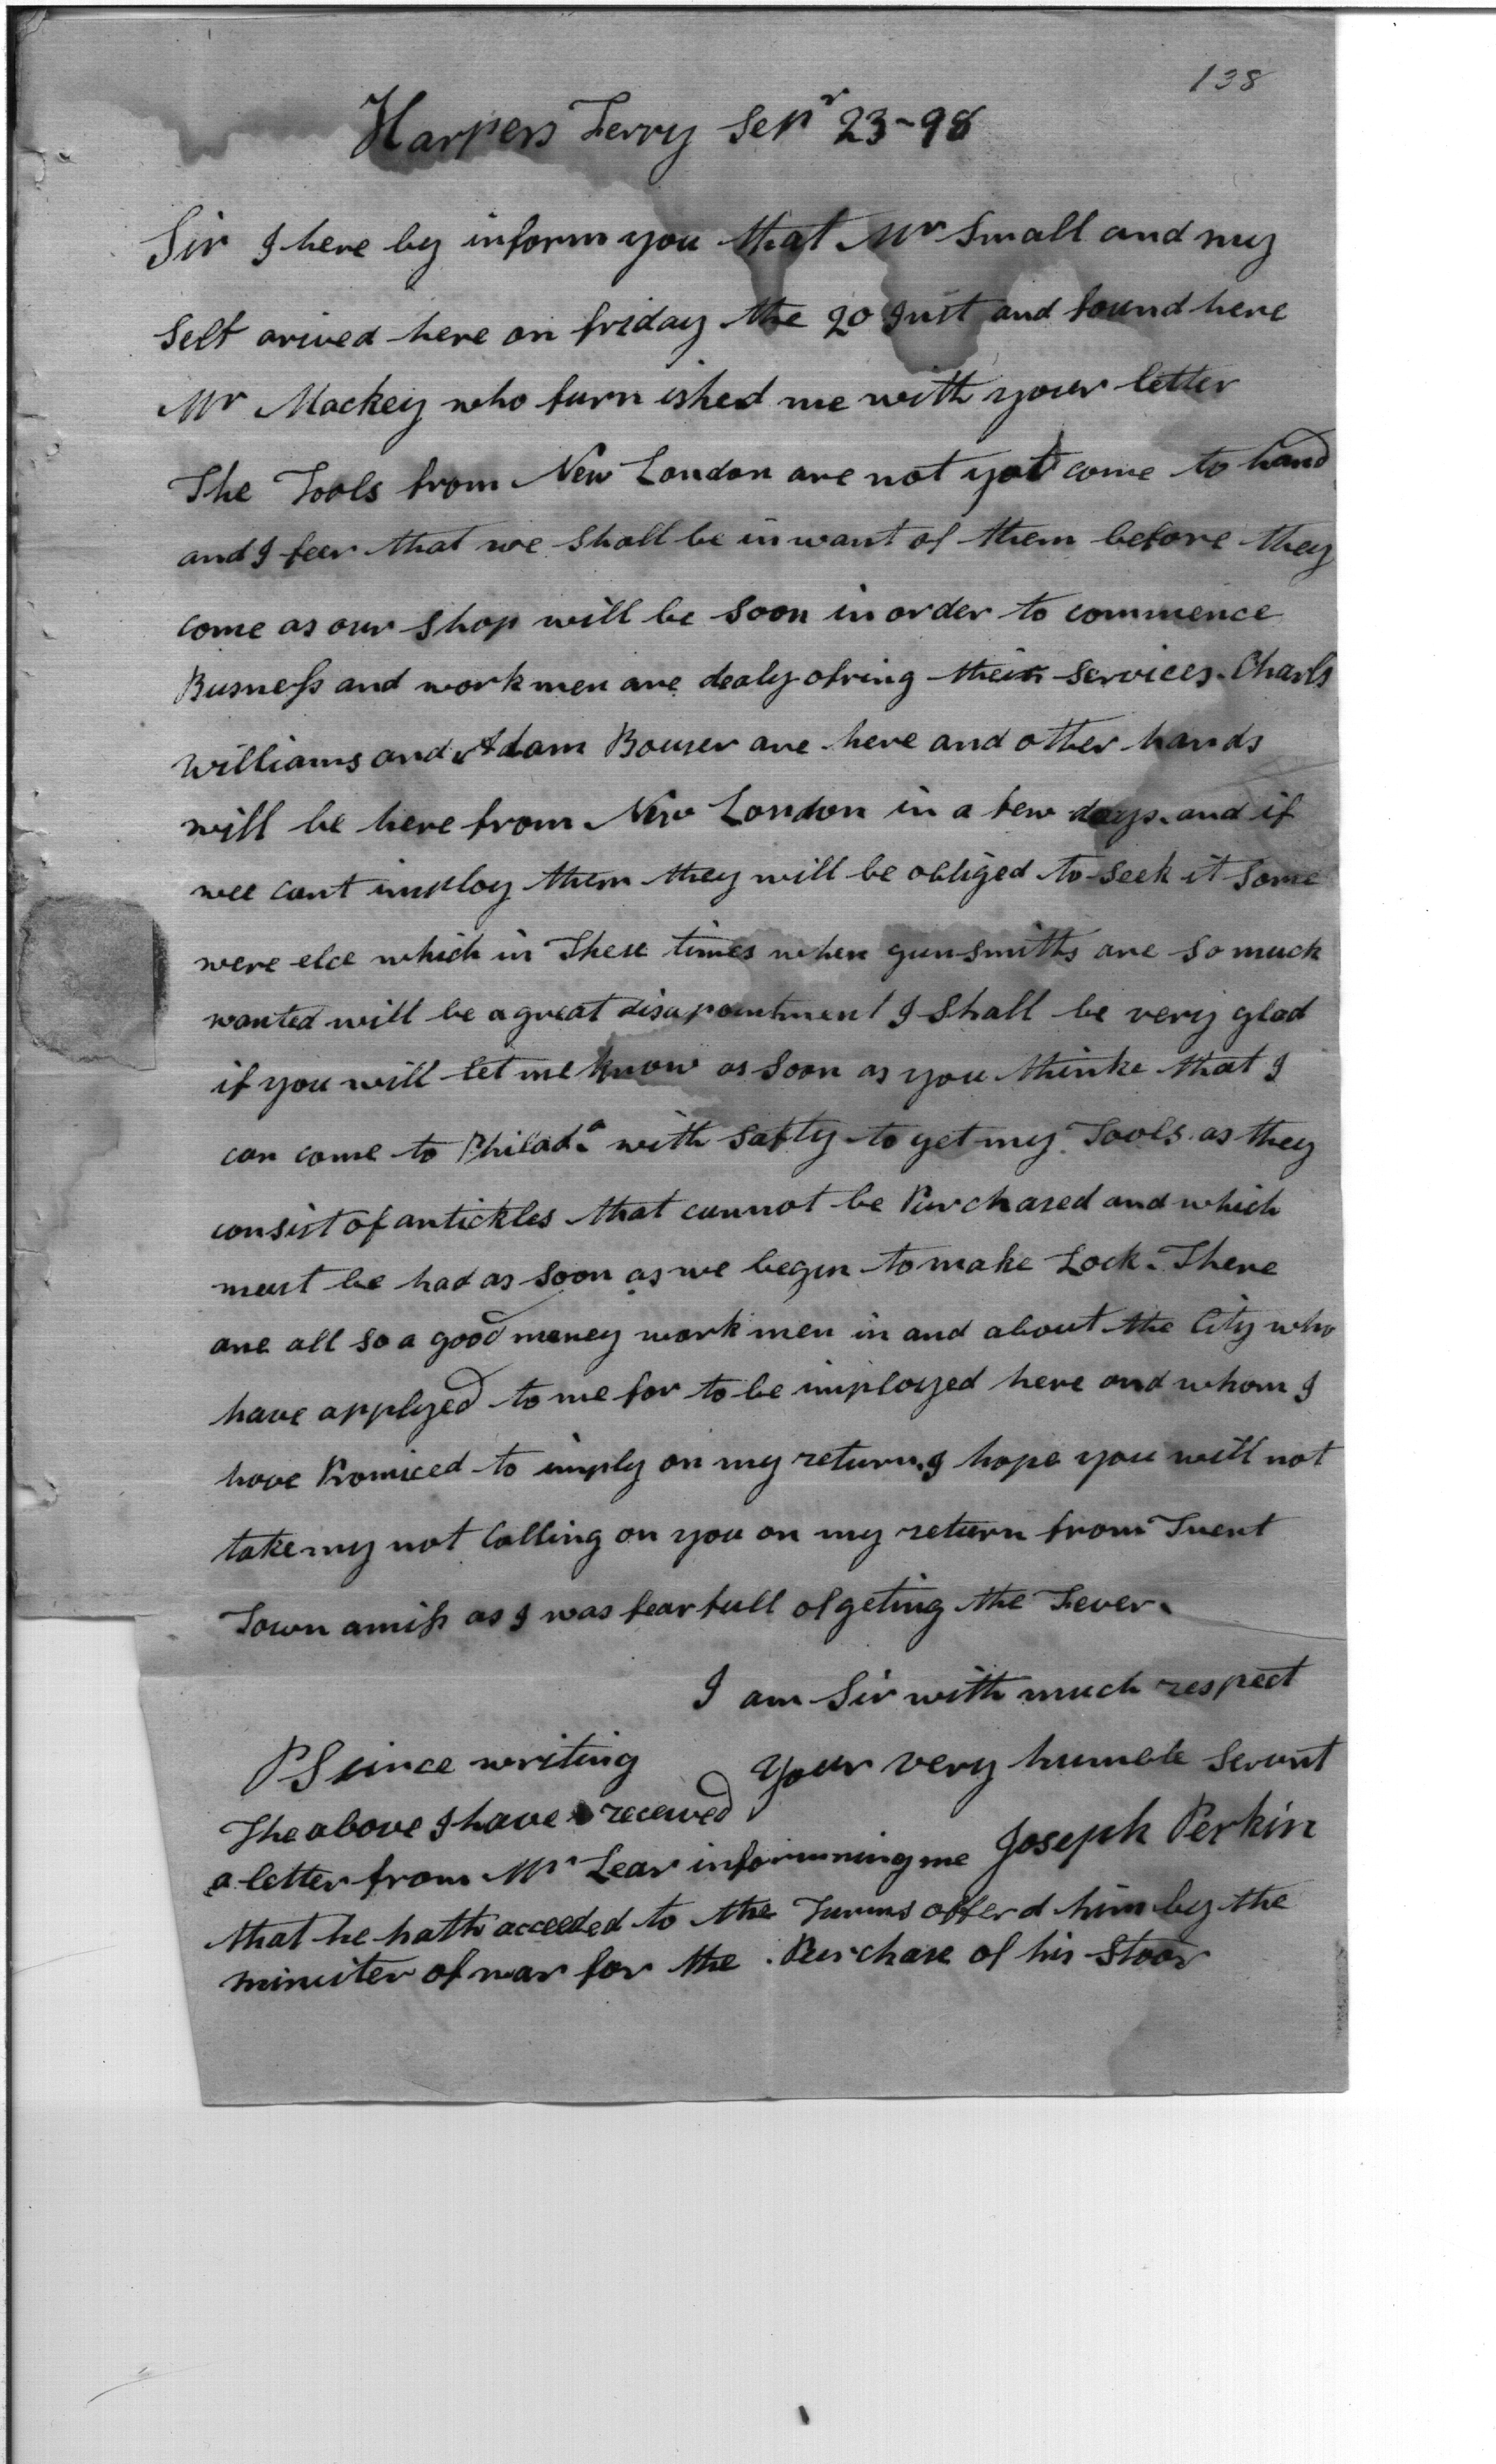 138
Harpers Ferry Sepr 23-98
Sir I here by inform you that Mr Small and my
Self arived here on friday the 20 Inst and found here
Mr Mackey who furn ished me with your letter
The Tools from New London are not yet come to hand
and I feer that we shall be in want of them before they
come as our shop will be soon in order to commence
Busness and workmen are dealy ofring their services. Charls
Williams and Adam Bouser are here and other hands
will be here from New London in a few days. and if
wee cant imploy them they will be obliged to seek it some
were elce which in These times when gunsmiths are so much
wanted will be a great disapointment I shall be very glad
if you will let me know as soon as you thinke that I
can come to Philada with safty to get my Tools as they
consist of artickles that cannot be Purchased and which
must be had as soon as we begin to make Lock. There
are all so a good meney work men in and about the City who
have applyed to me for to be imployed here and whom I
have Promiced to imply on my return. I hope you will not
take my not Calling on you on my return from Trent
Town amiss as I was fear full of geting the Fever.
I am Sir with much respect
your very humble Servnt
Joseph Perkin
PS since writing
The above I have receved
a letter from Mr Lear informing me
that he hath acceeded to the Turms offerd him by the
minister of war for the Purchase of his Stoor